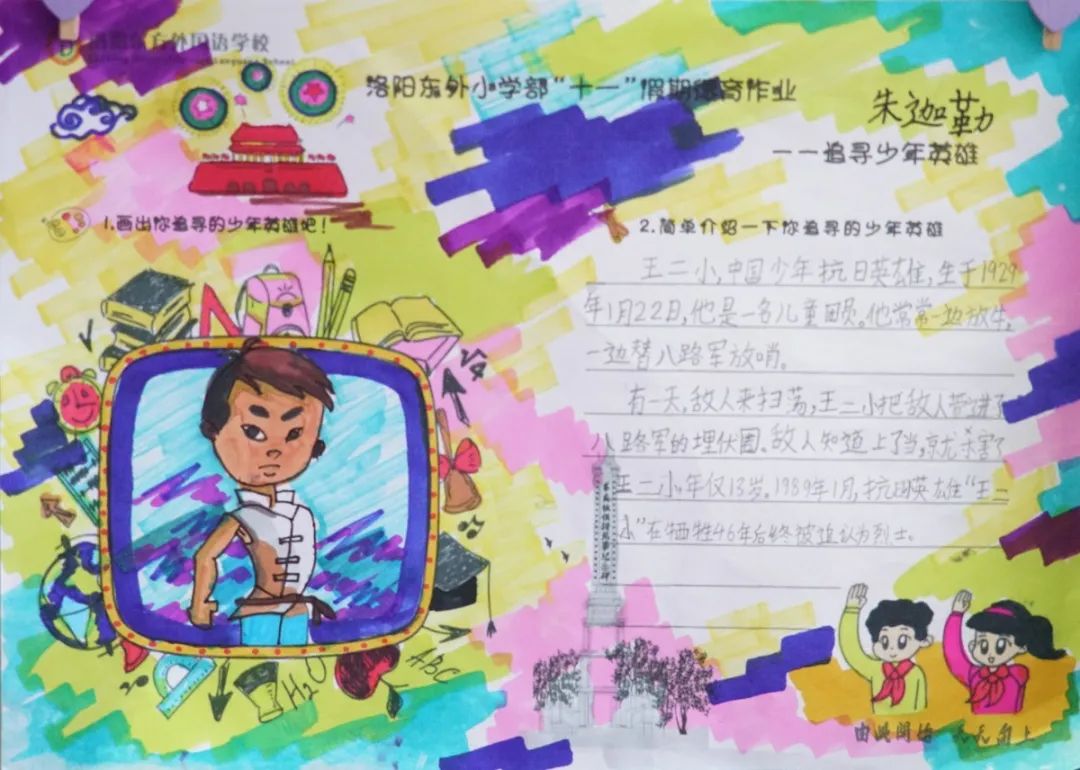 方外国语学校
洛阳东外小学部“十一”假期德育作业
朱迦勒
——追寻少年英雄
1.画出你追寻的少年英雄吧！
2.简单介绍一下你追寻的少年英雄
王二小，中国少年抗日英雄，生于1929
年1月22日，他是一名儿童团员。他常常一边放牛，
一边替八路军放哨。
有一天，敌人来扫荡，王二小把敌人带进了
八路军的埋伏圈。敌人知道上了当，就杀害了
王二小，年仅13岁。1989年1月，抗日英雄“王二
小”在牺牲46年后终被追认为烈士。
H₂O
ABC
由此开始 天天向上